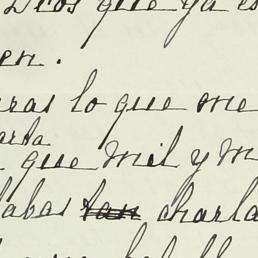 Dios que ya es
en.
ras lo que me
arta
que mil y m
abas tan charla